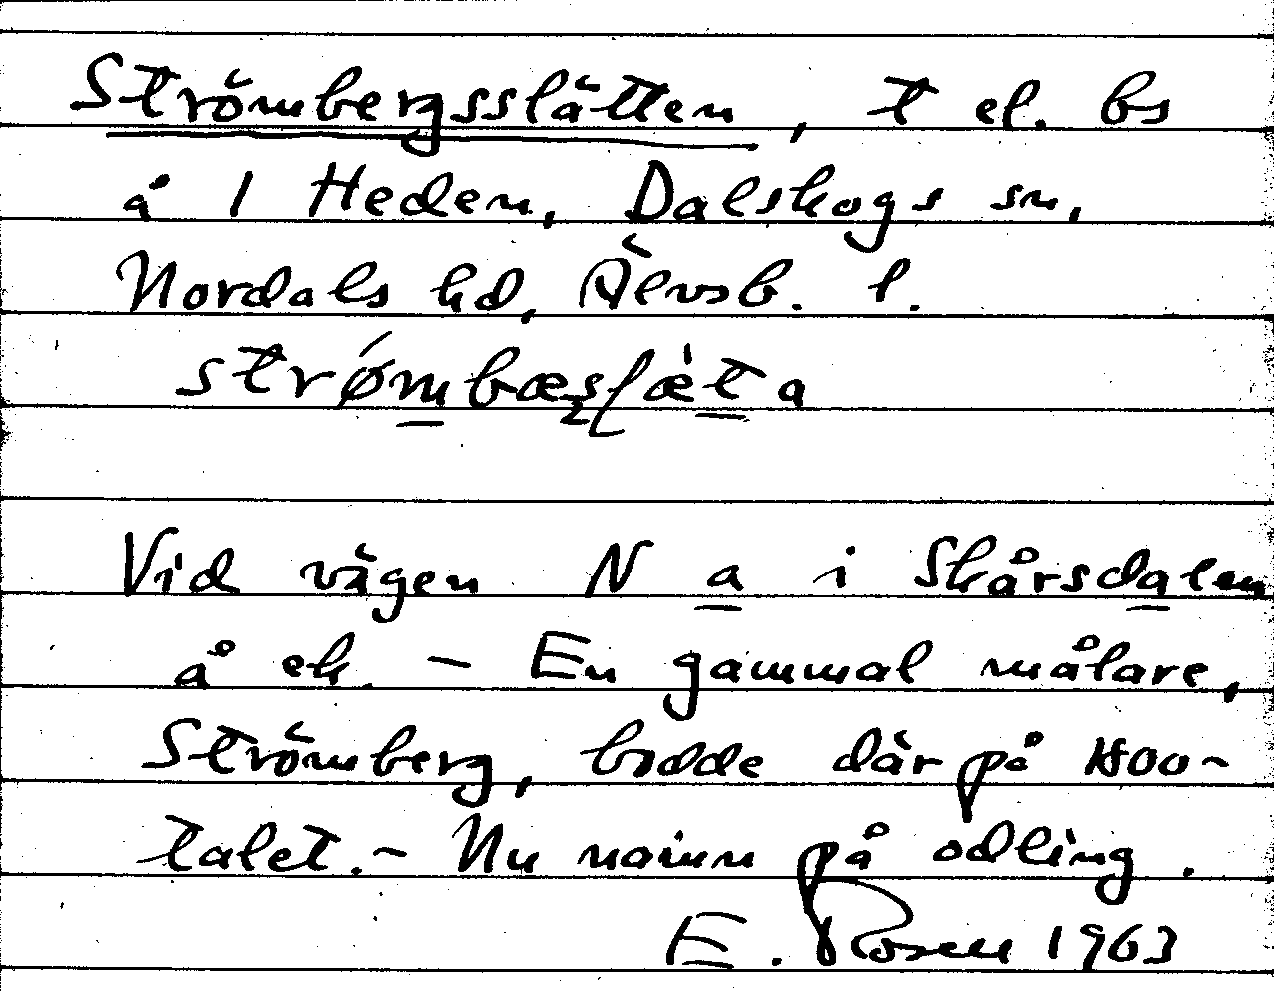 Strömbergsslätten, t el. bs
å 1 Heden, Dalskogs sn,
Nordals hd, Älvsb. l.
strǿmbæsʂlæ̀ta
Vid vägen N a i Skårsdalen
å ek. – En gammal målare,
Strömberg, bodde där på 1800-
talet. – Nu namn på odling.
E. Rosen 1963